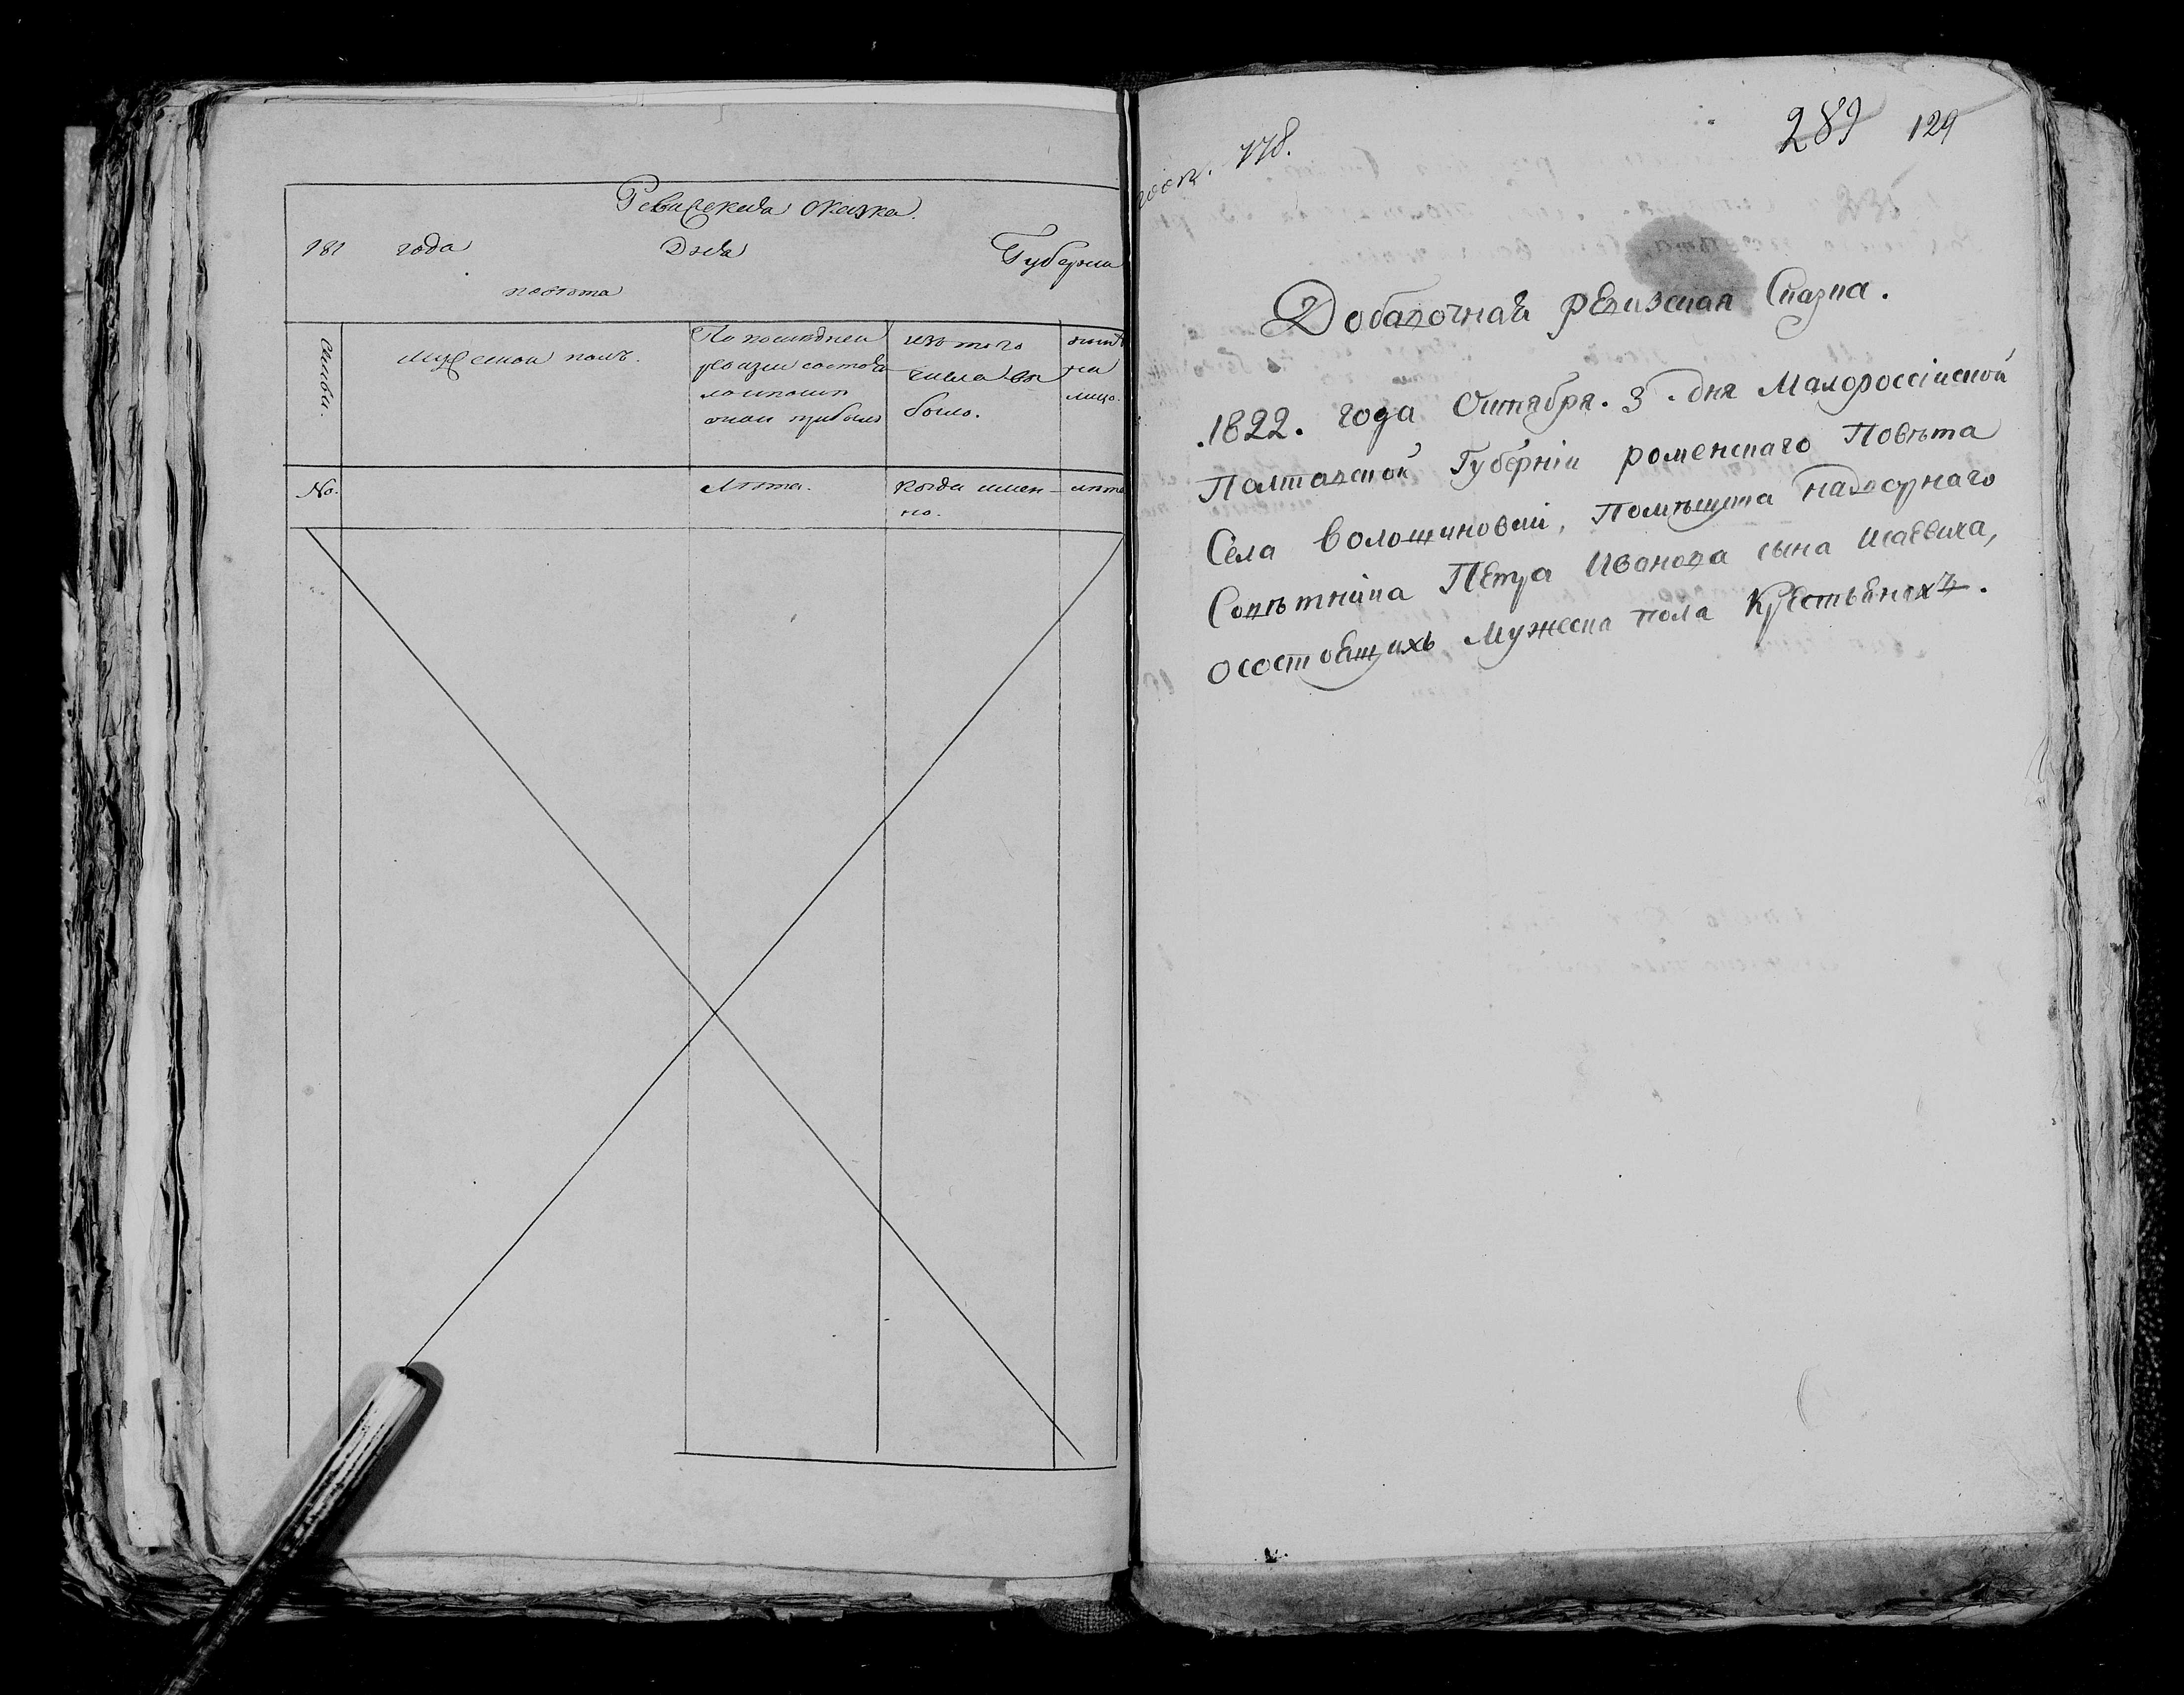 Ревизская сказка.
181 года Дня Губернии
повета
Семьи.
Мужеской полъ.
По последней
ревизии состоя
ло и после
оной прибыло
изъ того
числа вы
было.
ныне
на
лицо.
No.
Лета.
Когда имен-
но.
лета
778.
289 129
Добавочная ревизская Сказка.
.1822. года Октября. 3. дня Малороссійской
Полтавской Губерніи роменскаго Повѣта
Села волошиновки, Помѣщика надворнаго
Совѣтника Петра Иванова сына Исаевича,
о состоящихъ Мужеска пола Крестьянахъ.